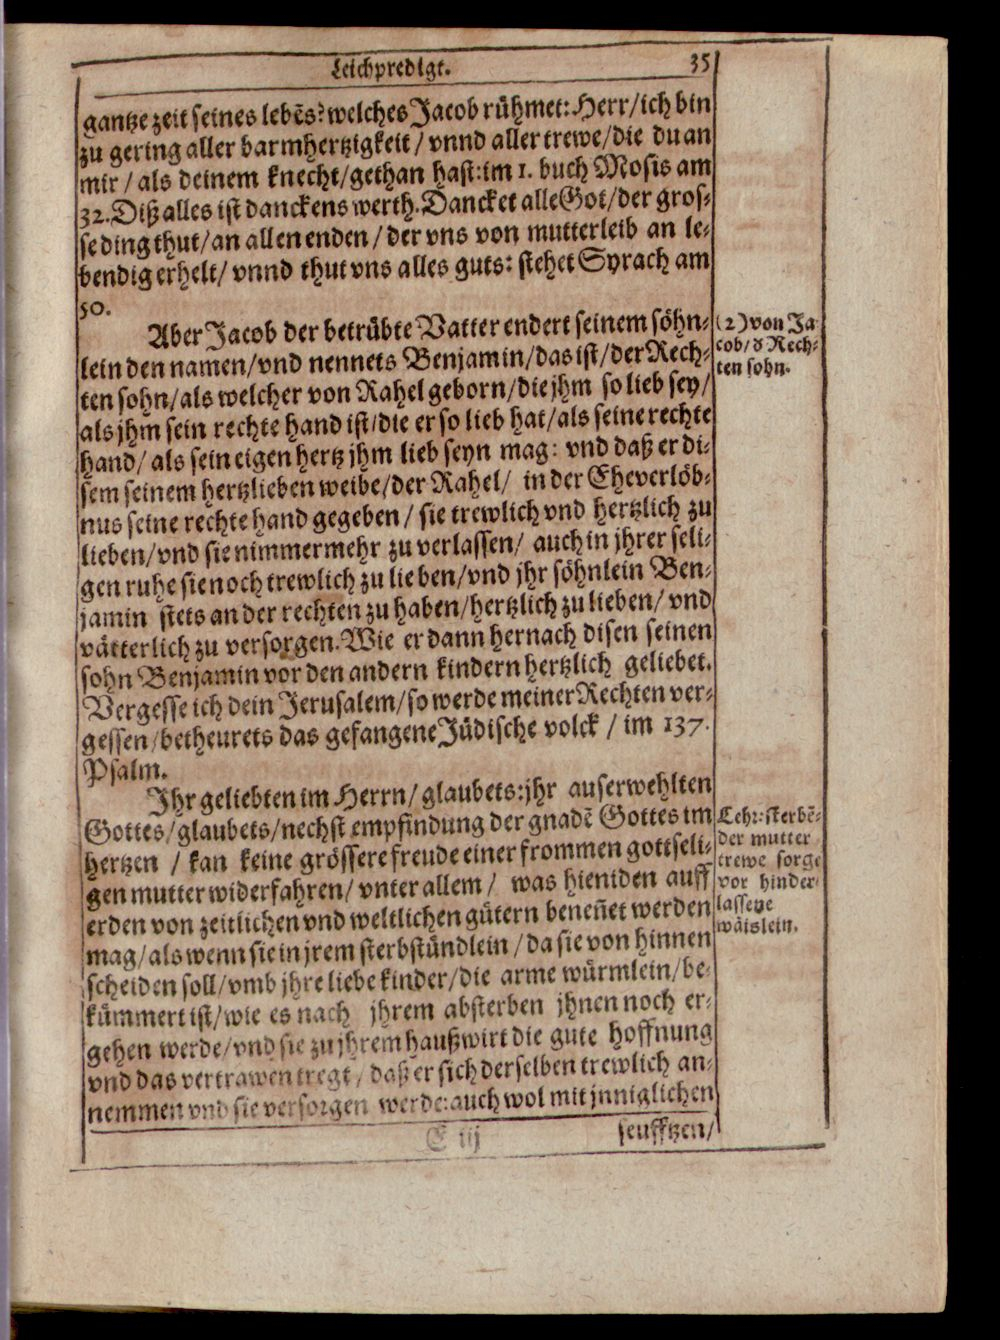 Leichpredigt. 35
gantze zeit seines lebẽs? welches Jacob rühmet: Herr/ ich bin
zu gering aller barmhertzigkeit/ vnnd aller trewe/ die du an
mir/ als deinem knecht/ gethan hast: im 1. buch Mosis am
32. Diß alles ist danckens werth. Dancket alle Got/ der gros-
se ding thut/ an allen enden/ der vns von mutterleib an le-
bendig erhelt/ vnnd thut vns alles guts: stehet Syrach am
50.
Aber Jacob der betrübte Vatter endert seinem söhn-
lein den namen/ vnd nennets Benjamin/ das ist/ der Rech-
ten sohn/ als welcher von Rahel geborn/ die jhm so lieb sey/
als jhm sein rechte hand ist/ die er so lieb hat/ als seine rechte
hand/ als sein eigen hertz jhm lieb seyn mag: vnd daß er di-
sem seinem hertzlieben weibe/ der Rahel/ in der Eheverlöb-
nus seine rechte hand gegeben/ sie trewlich vnd hertzlich zu
lieben/ vnd sie nimmermehr zu verlassen/ auch in jhrer seli-
gen ruhe sie noch trewlich zu lieben/ vnd jhr söhnlein Ben-
jamin stets an der rechten zu haben/ hertzlich zu lieben/ vnd
vätterlich zu versorgen. Wie er dann hernach disen seinen
sohn Benjamin vor den andern kindern hertzlich geliebet.
Vergesse ich dein Jerusalem/ so werde meiner Rechten ver-
gessen/ betheurets das gefangene Jüdische volck/ im 137.
Psalm.
(2) von Ja
cob/ d̕ Rech-
ten sohn.
Ihr geliebten im Herrn/ glaubets: jhr auserwehlten
Gottes/ glaubets/ nechst empfindung der gnadẽ Gottes im
hertzen / kan keine grössere freude einer frommen gottseli-
gen mutter widerfahren/ vnter allem/ was hieniden auff
erden von zeitlichen vnd weltlichen gütern beneñet werden
mag/ als wenn sie in jrem sterbstündlein/ da sie von hinnen
scheiden soll/ vmb jhre liebe kinder/ die arme würmlein/ be-
kümmert ist/ wie es nach jhrem absterben jhnen noch er-
gehen werde/ vnd sie zu jhrem haußwirt die gute hoffnung
vnd das vertrawen tregt/ daß er sich derselben trewlich an-
nemmen vnd sie versorgen werde: auch wol mit jnniglichen
Lehr: sterbẽ-
der mutter
trewe sorge
vor hinder-
lassene
wäislein.
E iij seufftzen/